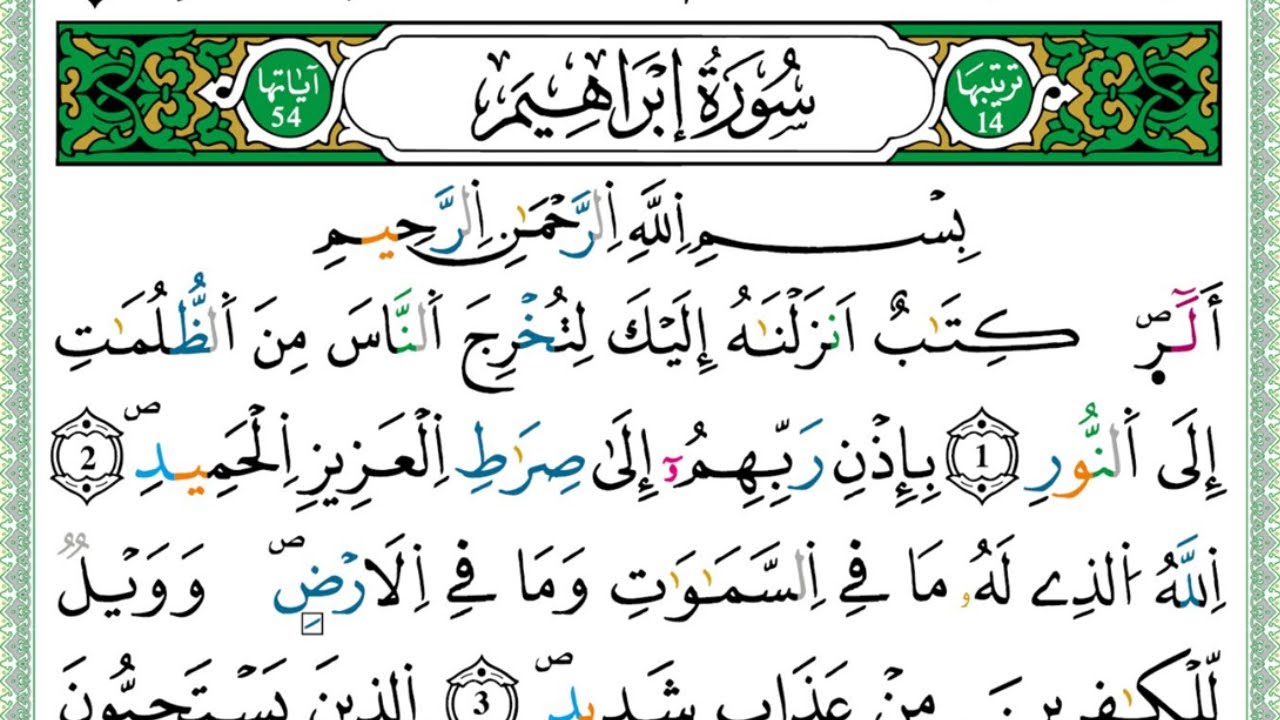 تَرْتِيبُهَا 14
سُورَةُ إِبْرَاهِيمَ
آيَاتُهَا 54
بِسْمِ اِ۬للَّهِ اِ۬لرَّحْمَٰنِ اِ۬لرَّحِيمِ
أَلَٓر۪ۖ كِتَٰبٌ اَنزَلْنَٰهُ إِلَيْكَ لِتُخْرِجَ اَ۬لنَّاسَ مِنَ اَ۬لظُّلُمَٰتِ
إِلَى اَ۬لنُّورِ 1 بِإِذْنِ رَبِّهِمُۥٓ إِلَىٰ صِرَٰطِ اِ۬لْعَزِيزِ اِ۬لْحَمِيدِۖ 2
اِ۬للَّهُ اُ۬لذِے لَهُۥ مَا فِے اِ۬لسَّمَٰوَٰتِ وَمَا فِے اِ۬لَارْضِۖ وَوَيْلٌ
لِّلْكٰ۪فِرِينَ مِنْ عَذَابٖ شَدِيدٍۖ 3 اِ۬لذِينَ يَسْتَحِبُّونَ